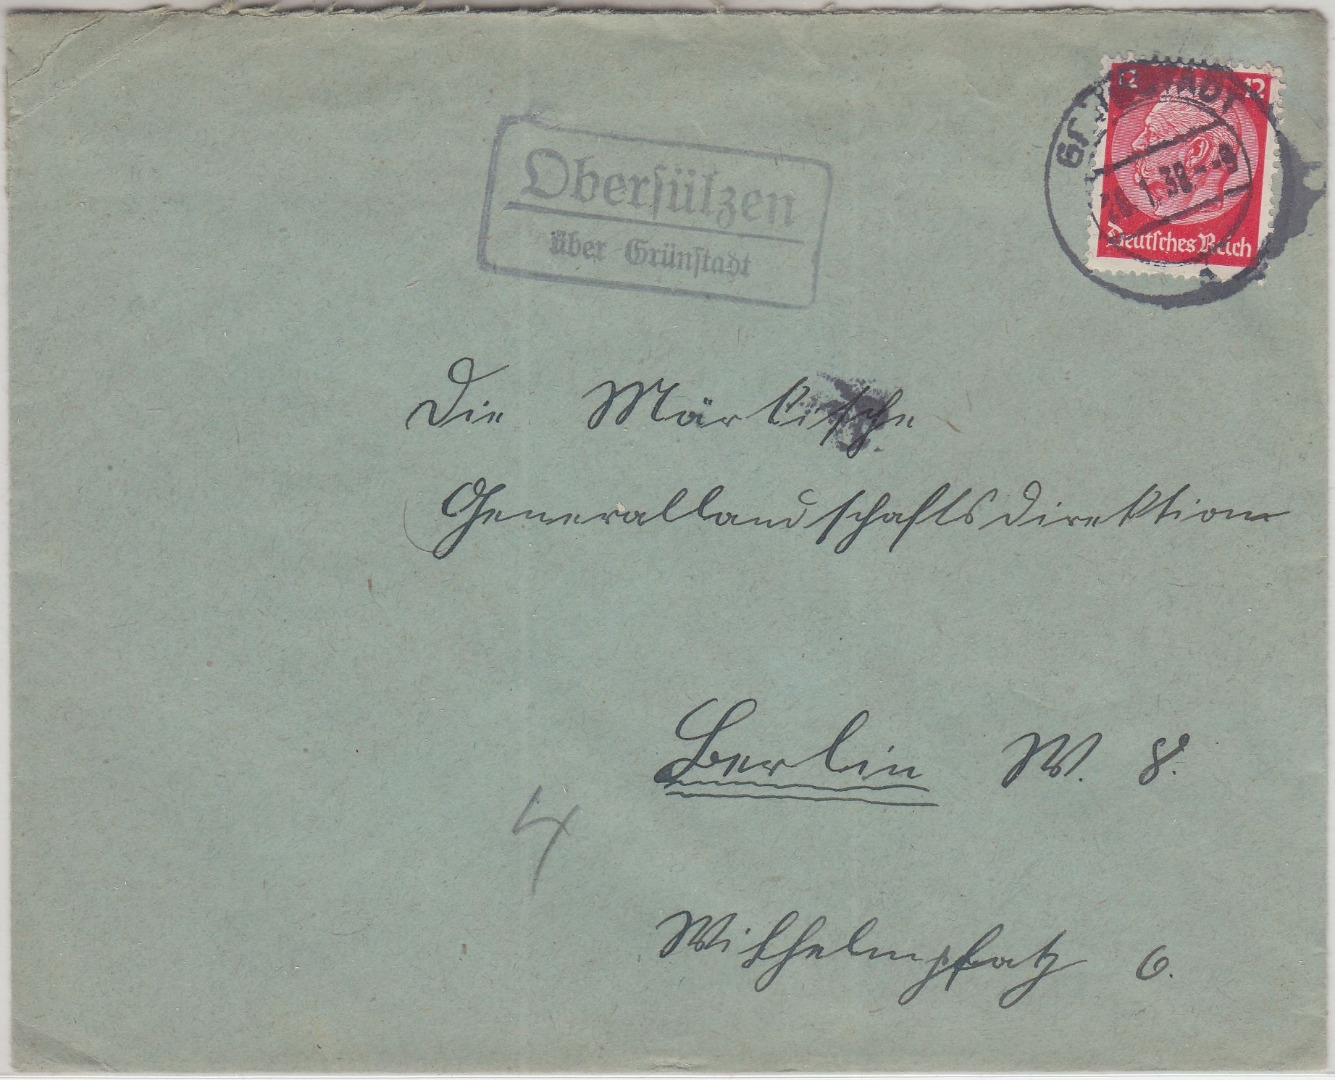 Obersülzen
über Grünstadt
12 12
1.38.--9
Deutsches Reich
Die Märkische
Generallandschaftsdirektion
Berlin W. 8.
4
Wilhelmplatz 6.